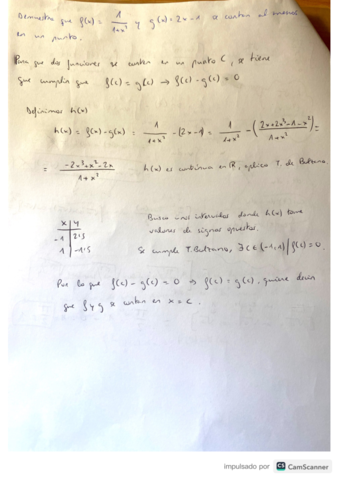 Demuestra que f(x) = 1/(1+x²) y g(x) = 2x-1 se cortan al menos
en un punto.
Para que dos funciones se corten en un punto C, se tiene
que cumplir que f(c) = g(c) → f(c) - g(c) = 0
Definimos h(x)
h(x) = f(x) - g(x) = 1/(1+x²) - (2x-1) = 1/(1+x²) - ((2x+2x³-1-x²)/(1+x²)) =
= (-2x³+x²-2x)/(1+x²) h(x) es continua en R, aplico T. de Bolzano
x | y
-1 | 2'5
1 | -1'5
Busco unos intervalos donde h(x) tome
valores de signos opuestos.
Se cumple T. Bolzano, ∃ c ∈ (-1,1) / f(c) = 0.
Por lo que f(c) - g(c) = 0 ⇒ f(c) = g(c), quiere decir
que f y g se cortan en x = c.
impulsado por CS CamScanner